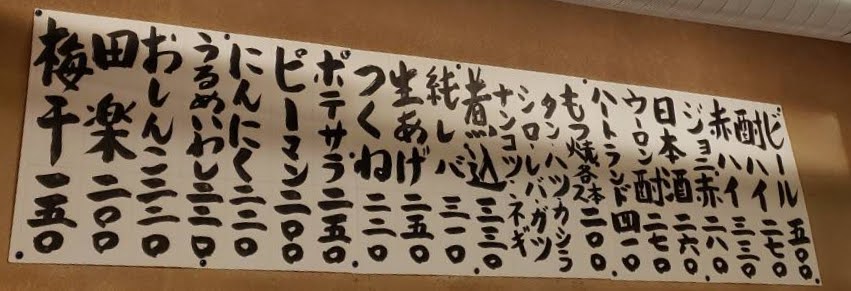 ビール 五〇〇
酎ハイ 二七〇
赤ハイ 三三〇
ジョニ赤 二八〇
日本酒 二六〇
ウーロン酎 二七〇
ハートランド 四一〇
もつ焼各本 二〇〇
タン・ハツ・カシラ
シロ・レバ・ガツ
ナンコツ・ネギ
煮込 三三〇
純レバ 三一〇
生あげ 二五〇
つくね 二二〇
ポテサラ 二五〇
ピーマン 二〇〇
にんにく 二二〇
うるめいわし 二二〇
おしんこ 二二〇
田楽 二〇〇
梅干 一五〇